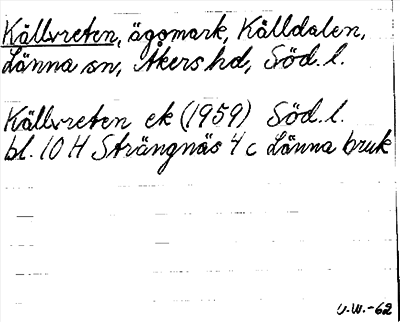 Källvreten, ägomark, Källdalen,
Länna sn, Åkers hd, Söd. l.
Källvreten ek (1959) Söd. l.
bl. 10 H Strängnäs 4 c Länna bruk
U.W.-62